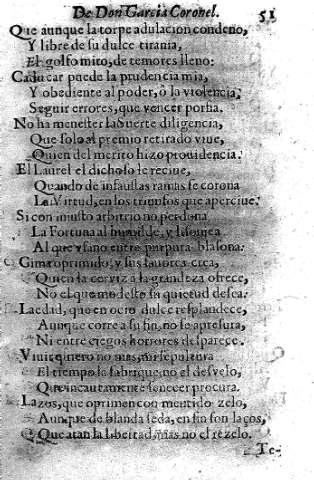 De Don Garcia Coronel. 51
Que aunque la torpe adulacion condeno,
Y libre de su dulce tirania,
El golfo mito, de temores lleno:
Caducar puede la prudencia mia,
Y obediente al poder, ò la violencia,
Seguir errores, que vencer porfia.
No ha menester la suerte diligencia,
Que solo al premio retirado viue,
Quien del merito hizo prouidencia.
El Laurel el dichoso le reciue,
Quando de infaustas ramas se corona
La Virtud, en los triunfos que aperciue.
Si con injusto arbitrio no perdona
La Fortuna al humilde, y lisonjea
Al que vfano entre purpura blasona.
Gima oprimido, y sus fauores crea,
Quien la cerviz à la grandeza ofrece,
No el que modesto su quietud desea.
La edad, que en ocio dulce resplandece,
Aunque corre a su fin, no se apresura,
Ni entre ciegos horrores desparece.
Viuir quiero no mas, mi sepultura
El tiempo la fabrique, no el desvelo,
Que incautamente fenecer procura.
Lazos, que oprimen con mentido zelo,
Aunque de blanda seda, en fin son laços,
Que atan la libertad, mas no el rezelo.
Te-